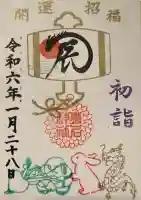 開運招福
辰
初詣
令和六年一月二十八日